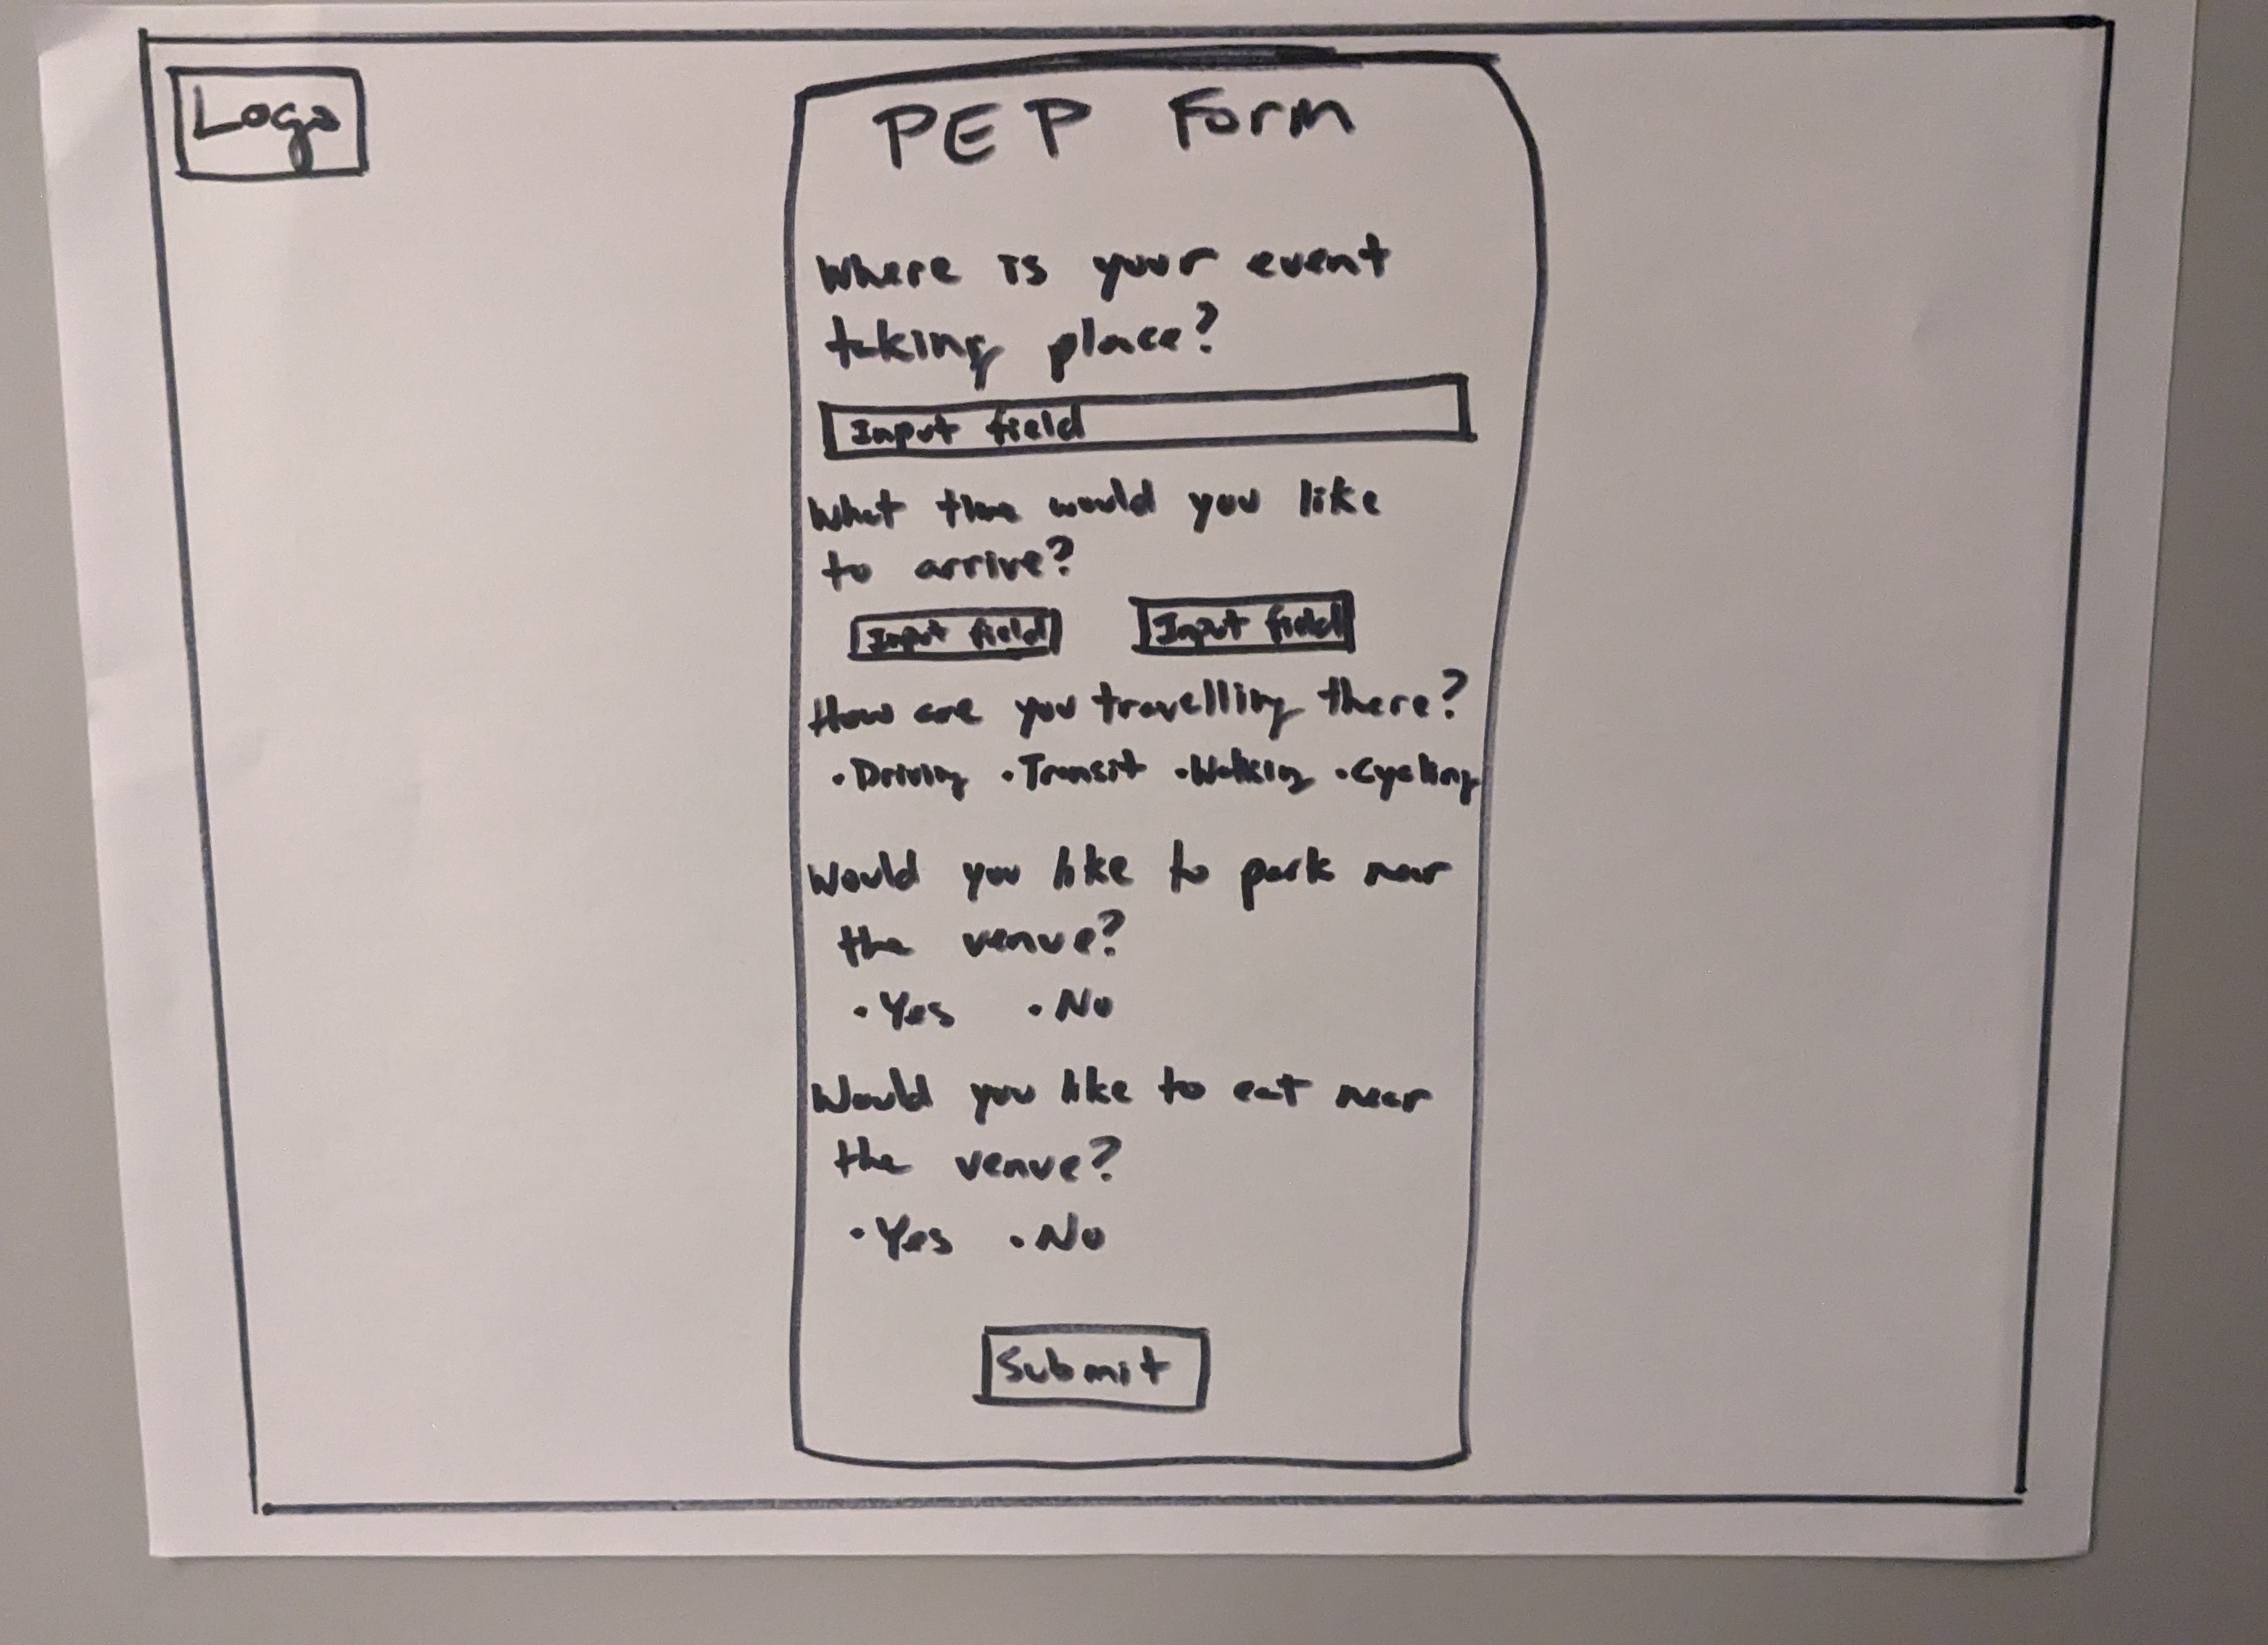 Logo
PEP Form
Where is your event
taking place?
Input field
What time would you like
to arrive?
Input field Input field
How are you travelling there?
• Driving • Transit • Walking • Cycling
Would you like to park near
the venue?
• Yes • No
Would you like to eat near
the venue?
• Yes • No
Submit